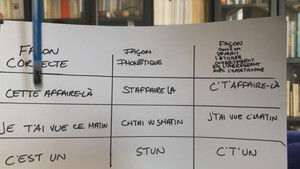 FAÇON
CORRECTE
FAÇON
PHONÉTIQUE
FAÇON
CETTE AFFAIRE-LÀ
STAFFAIRE LÀ
C'T'AFFAIRE-LÀ
JE T'AI VUE CE MATIN
CHTAI VU SMATIN
J'TAI VUE C'MATIN
C'EST UN
STUN
C'T'UN